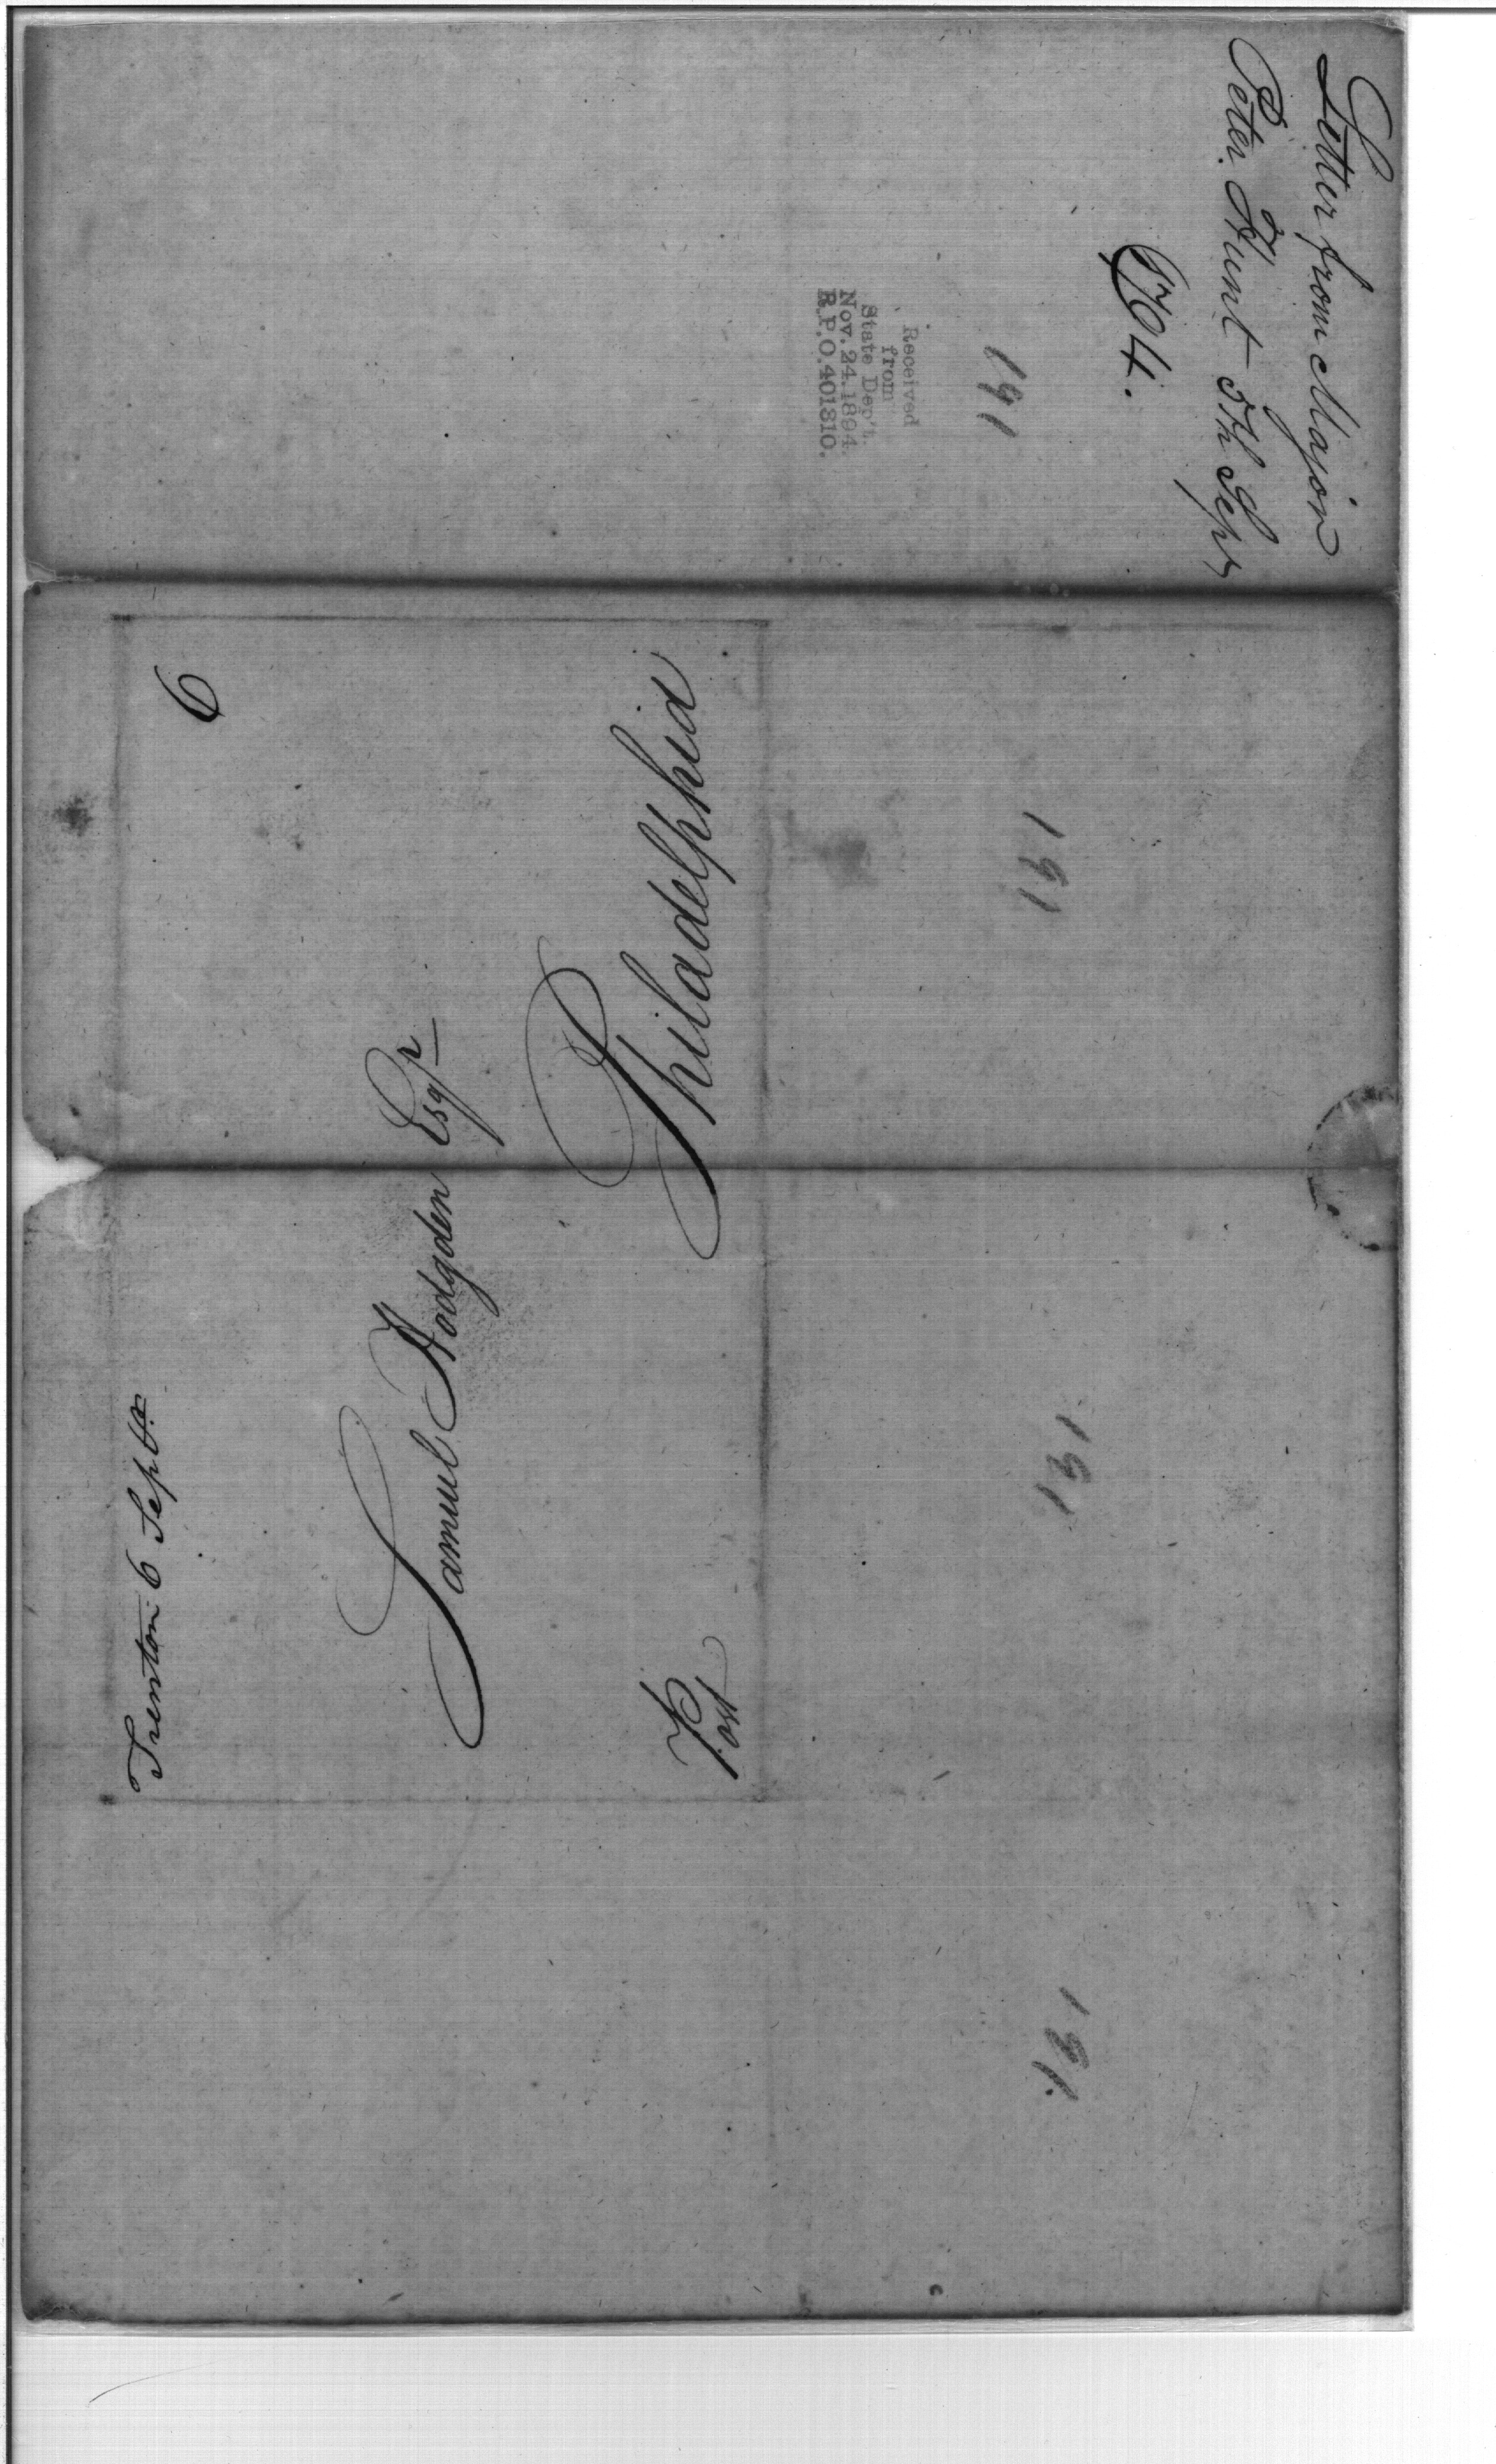 Letter from Major
Peter Hunt 5th Sepr
1794.
191
Received
from
State Dep't.
Nov. 24. 1894.
R.P.O. 401310.
Trenton 6 Septr
6
Samuel Hodgden Esqr
Post
Philadelphia
191
191
191.